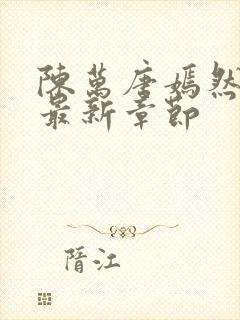 陳萬唐嫣然
最新章節
隋江